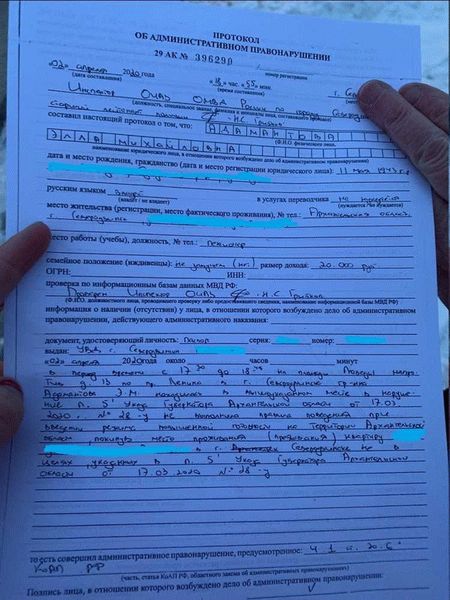 ПРОТОКОЛ
ОБ АДМИНИСТРАТИВНОМ ПРАВОНАРУШЕНИИ
29 АК № 396290
номер регистрации
«02» апреля 2020 года «18» час. «55» мин. г. 
(дата составления) (время составления)
Инспектор ОИАЗ ОМВД России по городу
(должность, специальное звание, фамилия и инициалы лица, составившего протокол)
составил настоящий протокол о том, что: АЛАМАНТОВА
(Ф.И.О. физического лица,
ЭЛЛА МИХАЙЛОВНА
наименование юридического лица, в отношении которого возбуждено дело об административном правонарушении)
дата и место рождения, гражданство (дата и место регистрации юридического лица): 11 мая
русским языком в услугах переводчика не
(владеет / не владеет) (нуждается / не нуждается)
место жительства (регистрации, место фактического проживания), № тел.: Архангельская
г. Северодвинск
место работы (учебы), должность, № тел.: пенсионер
семейное положение (иждивенцы): размер дохода: 20.000 руб
ОГРН: ИНН:
проверка по информационной базе МВД РФ:
Инспектор ОИАЗ
(Ф.И.О. должностного лица, проводившего проверку либо предоставившего сведения, наименование информационной базы МВД РФ)
информация о наличии (отсутствии) у лица, в отношении которого возбуждено дело об административном
правонарушении, действующего административного наказания:
документ, удостоверяющий личность: Паспорт серия: номер:
выдан: УВД г. Северодвинска
«02» апреля 2020 года около часов минут
в период времени с 17 30 до 18 на площади Победы напротив
д. 13 по пр. Ленина в г. Северодвинске гр-ка
Э.М. находилась в общественном месте в наруше-
ние п. 5 Указа Губернатора Архангельской области от 17.03
2020 г. № 28-у не выполнила правила поведения при
введении режима повышенной готовности на территории Архангельской
области, покинув место проживания (пребывания) квартиру
в г. Северодвинске не в
целях, указанных в п. 5 Указа Губернатора Архангельской
области от 17.03 2020 № 28-у
то есть совершил административное правонарушение, предусмотренное: ч. 1 ст. 20.6
КоАП РФ
(часть, статья КоАП РФ, областного закона об административных правонарушениях)
Подпись лица, в отношении которого возбуждено дело об административном правонарушении: